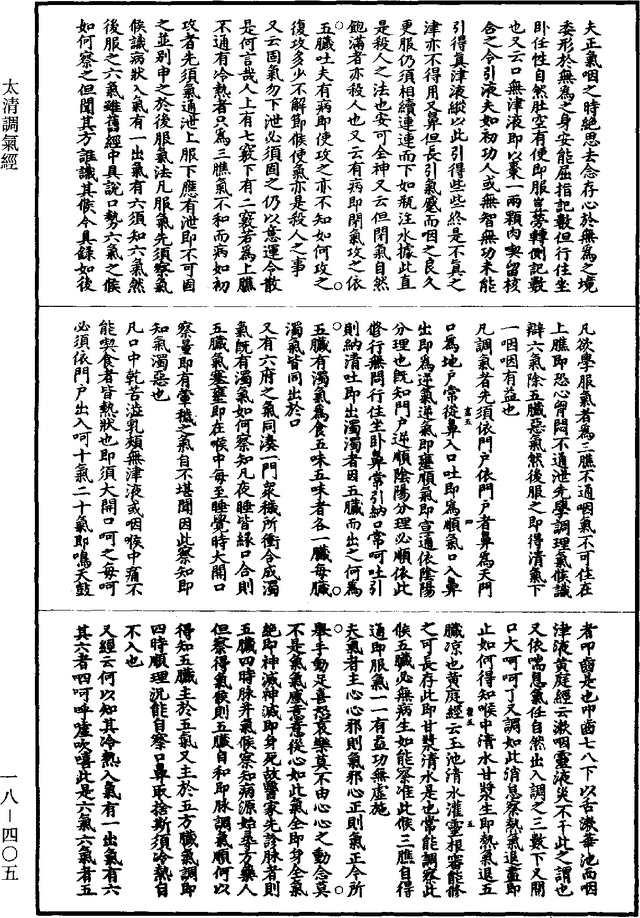 太清調氣經
夫正氣咽之時絕思去念存心於無為之境
委形於無為之身安能屈指記數但行住坐
臥任性自然肚空有使即服豈要轉側記數
也又云口無津液即以棗一兩顆肉喫留核
含之令引液夫如初功人或無智無功未能
引得真津液縱以此引得些些終是不真之
津亦不得用又鼻但長引氣感而咽之良久
更服仍須相續連連而下如瓶注水據此直
是殺人之法也安可全神又云但閉氣自然
飽滿者亦殺人也又云有病即閉氣攻之依
五臟吐夫有病即使攻之亦不知如何攻之
復攻多少不解即候使氣亦是殺人之事
又云固氣勿下泄必須固之仍以意運令散
是何言哉人上有七竅下有二竅若為上膲
不通有冷熱者只為三膲氣不和而病如初
攻者先須氣通泄上服下應有泄即不可固
之並別申之於後服氣法凡服氣先須察氣
候識病狀入氣有一出氣有六須知六氣然
後服之六氣雖舊經中具說口勢六氣之候
如何察之但聞其方誰識其候今具錄如後
凡欲學服氣者為三膲不通咽氣不可住在
上膲即惡心胷悶不通泄先學調理氣候識
辯六氣除五臟惡氣然後服之即得清氣下
一咽咽有益也
凡調氣者先須依門戶依門戶者鼻為天門
口為地戶常從鼻入口吐即為順氣口入鼻
出即為逆氣逆氣即壅順氣即宣通依陰陽
分理也既知門戶逆順陰陽分理必順依此
脩行無問行住坐臥鼻常引納口常呵吐引
則納清吐即出濁濁者因五臟而出之何為
五臟有濁氣為食五味五味者各一臟每臟
濁氣皆同出於口
又有六府之氣同湊一門眾穢所衝合成濁
氣既有濁氣如何察知凡夜睡皆緣口合則
五臟氣塞壅即在喉中每至睡覺時大開口
察量即有葷穢之氣自不堪聞因此察知即
知氣濁惡也
凡口中乾苦澁乳頰無津液或咽喉中痛不
能喫食者皆熱狀也即須大開口呵之每呵
必須依門戶出入呵十氣二十氣即鳴天鼓
者叩齒是也叩齒七八下以舌漱華池而咽
津液黃庭經云漱咽靈液災不干此之謂也
又依喘息氣任自然出入調之三數下又開
口大呵呵了又調如此消息察熱氣退盡即
止如何得知喉中清水甘漿生即熱氣退五
臟凉也黃庭經云玉池清水灌靈根審能修
之可長存此即甘漿清水是也常能調察此
候五臟必無病生如能察准此候三膲自得
通即服氣一一有益功無虛施
夫氣者主心心邪則氣邪心正則氣正今所
舉手動足喜怒哀樂莫不由心心之動念莫
不是氣氣感意意從心如此氣全即身全氣
絕即神滅神滅即身死故醫家先診脉者則
五臟四時脉并氣候察知病源始孝方藥人
但察得氣候則五臟自和即脉調氣順何以
得知五臟主於五氣又主於五方臟氣調即
四時順理況能自察口鼻取捨斯須冷熱自
不入也
又經云何以知其冷熱入氣有一出氣有六
其六者呬呵呼噓吹嘻此是六氣六氣者五
一八－四〇五